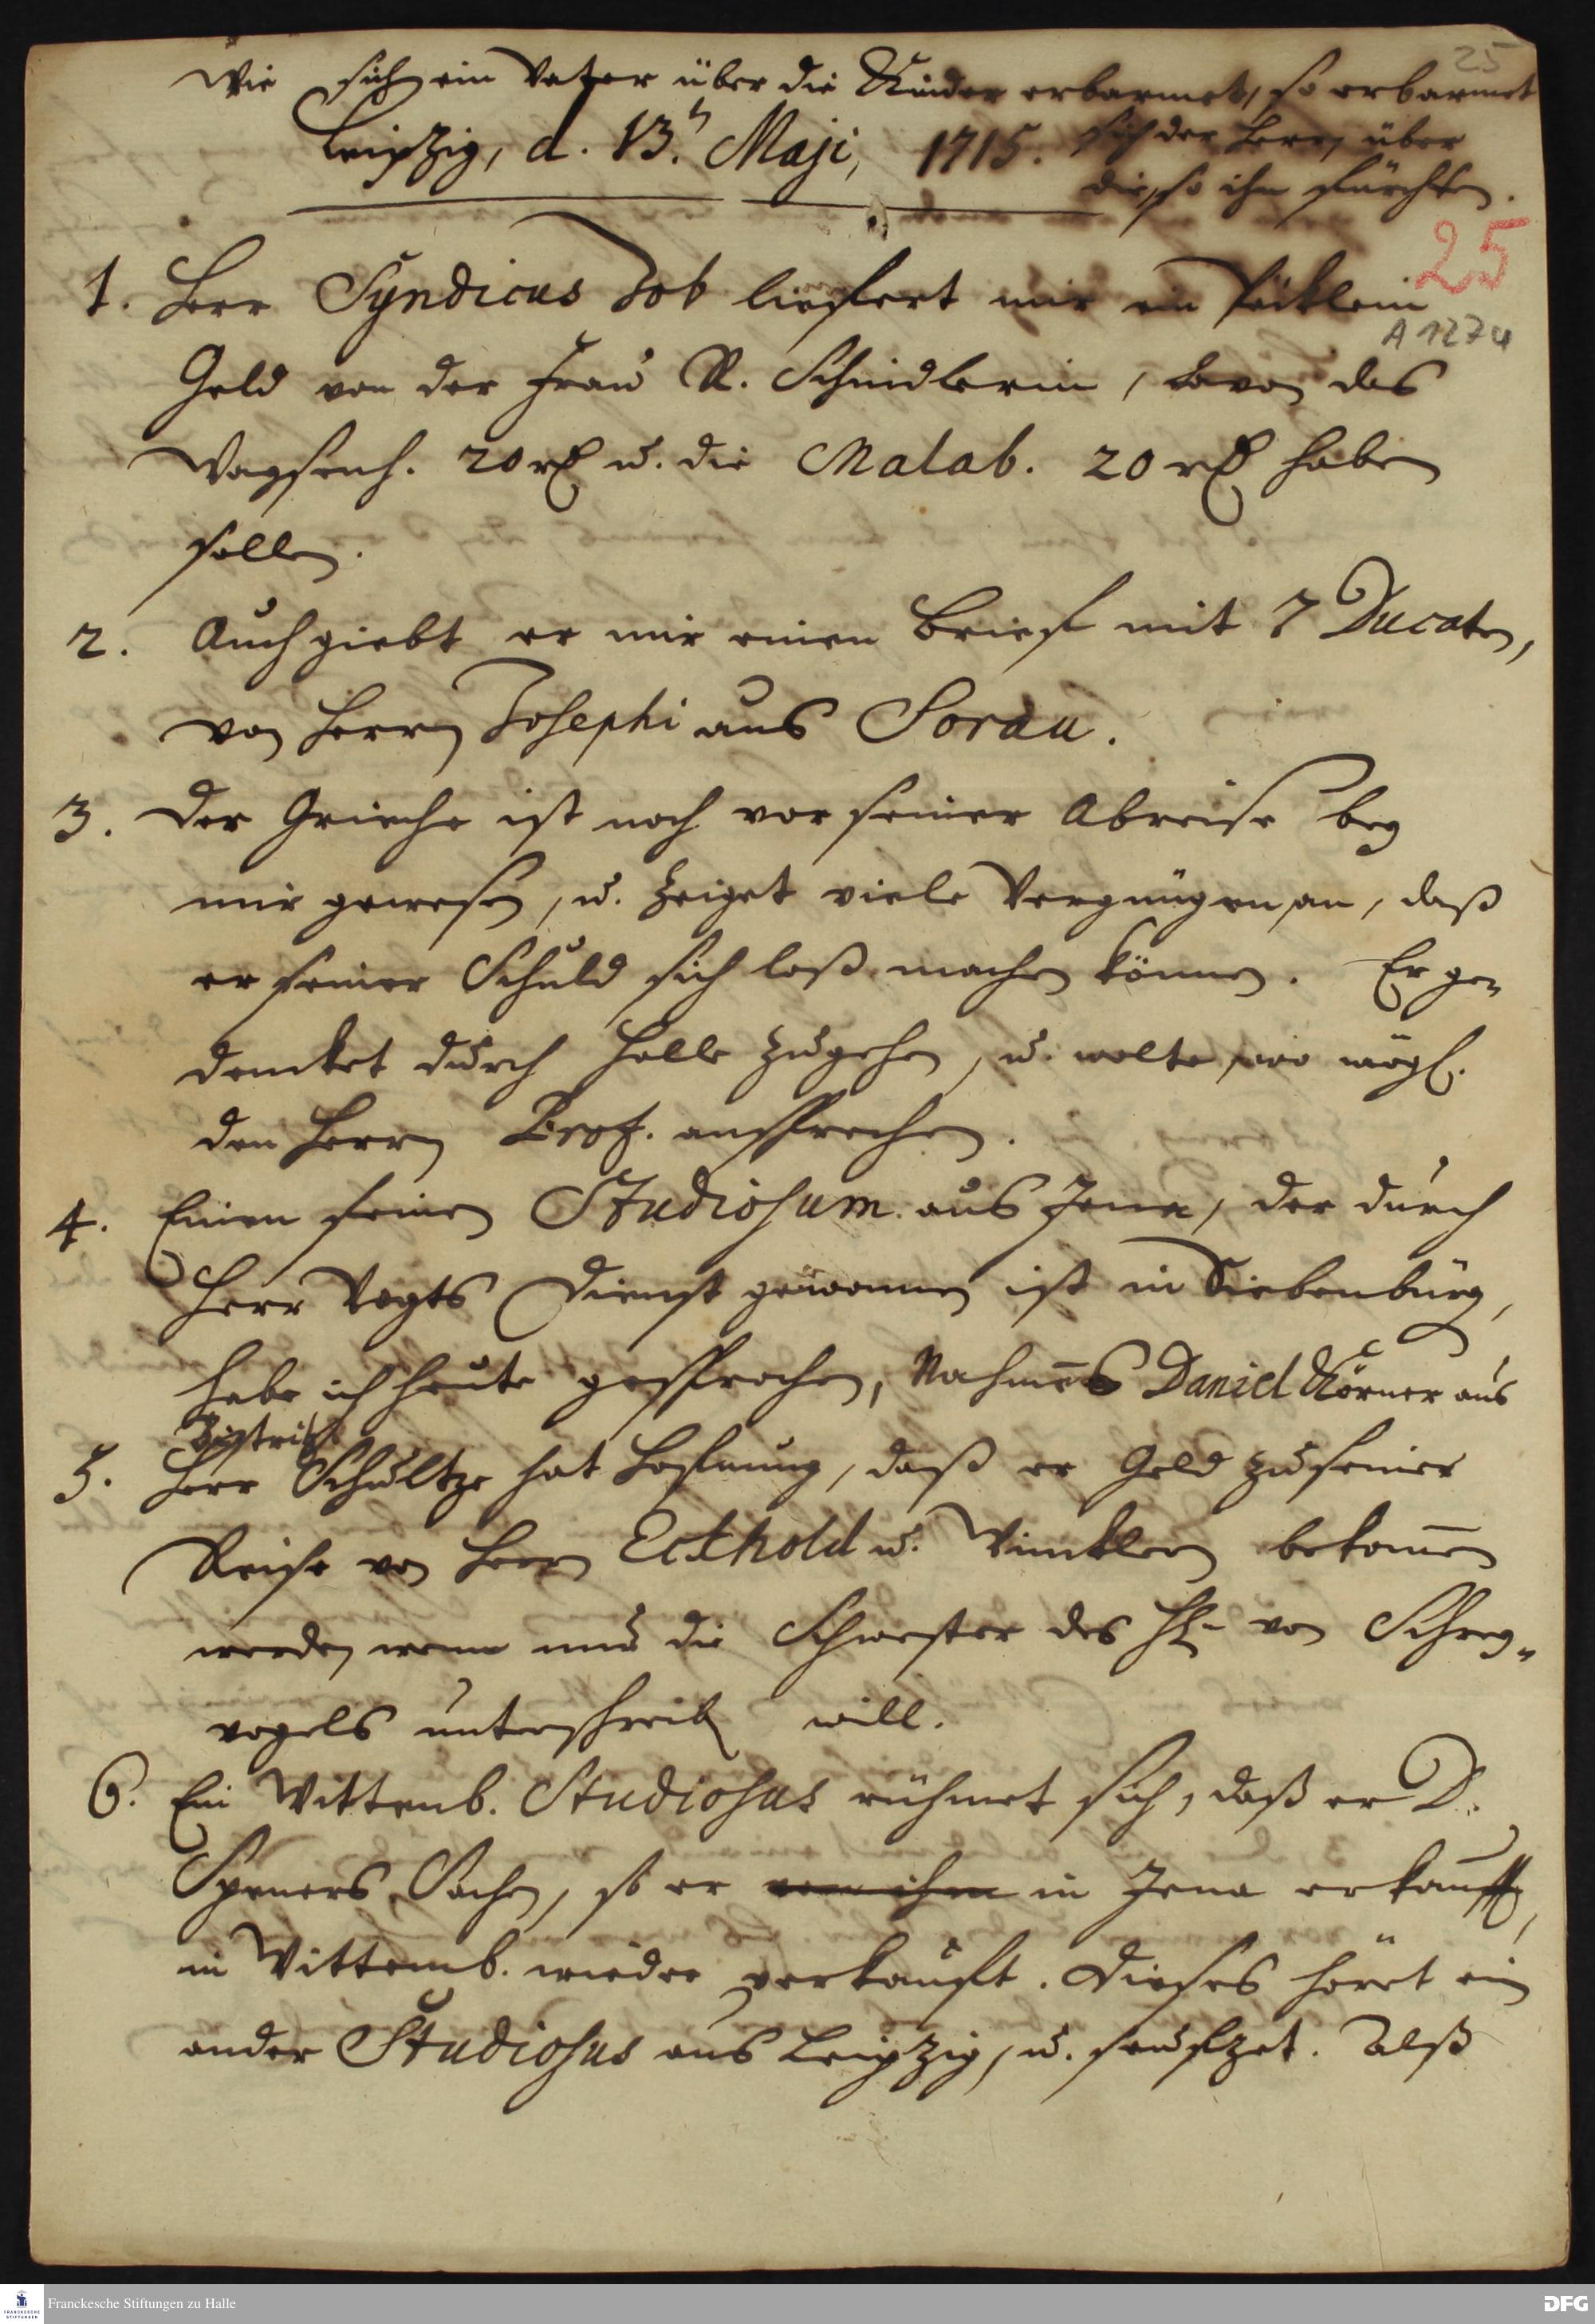 25
Wie sich ein Vater über die Kinder erbarmet, so erbarmet
Leipzig, d. 13. ♄ Maji, 1715. sich der Herr über
die, so ihn fürchten.
25
1. Herr Syndicus Job lieffert mir ein Päcklein
A 1274
Geld von der Frau R. Schindlerin, davon das
Waysenh. 20 rthl u. die Malab. 20 rthl haben
sollen.
2. Auch giebt er mir einen Brief mit 7 Ducaten,
von Herrn Josephi aus Sorau.
3. Der Grieche ist noch vor seiner Abreise bey
mir gewesen, u. zeiget viele Vergnügen an, daß
er seiner Schuld sich loß machen können. Er ge-
dencket durch Halle zugehen, u. wolte, wo mögl.
den Herrn Prof. ansprechen.
4. Einen feinen Studiosum aus Jena, der durch
Herr Vogts Dienst gewonnen ist in Siebenbürg,
habe ich heute gesprochen, Nahmens Daniel Körner aus
Bistritz
5. Herr Schultze hat Hoffnung, daß er Geld zu seiner
Reise von Herrn Eckhold u. Vincklern bekommen
werde, wenn nur die Schwester des H. von Schrey-
vogels unterschreiben will.
6. Ein Wittenb. Studiosus rühmet sich, daß er D.
Speners Sachen, so er von ihm in Jena erkaufft,
in Wittemb. wieder verkaufft. Dieses höret ein
ander Studiosus aus Leipzig, u. seufzet. Alß
Franckesche Stiftungen zu Halle
FRANCKESCHE STIFTUNGEN
DFG